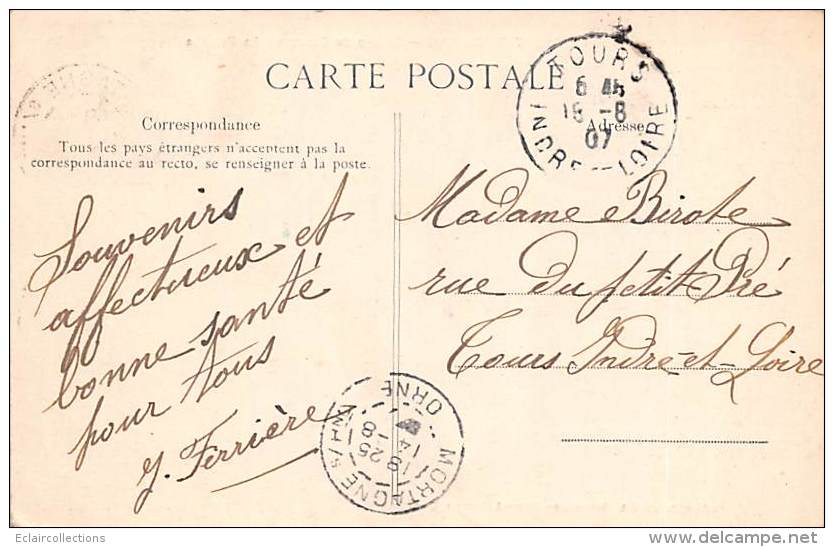 CARTE POSTALE
TOURS
6 45
16 -8
07
INDRE-ET-LOIRE
Correspondance
Adresse
Tous les pays étrangers n'acceptent pas la
correspondance au recto, se renseigner à la poste.
Souvenirs
affectueux et
bonne santé
pour tous
J. Ferrière
Madame Birote
rue du petit Pré
Tours Indre-et-Loire
MORTAGNE
ORNE
18 25
14 -8
Eclaircollections
www.delcampe.net